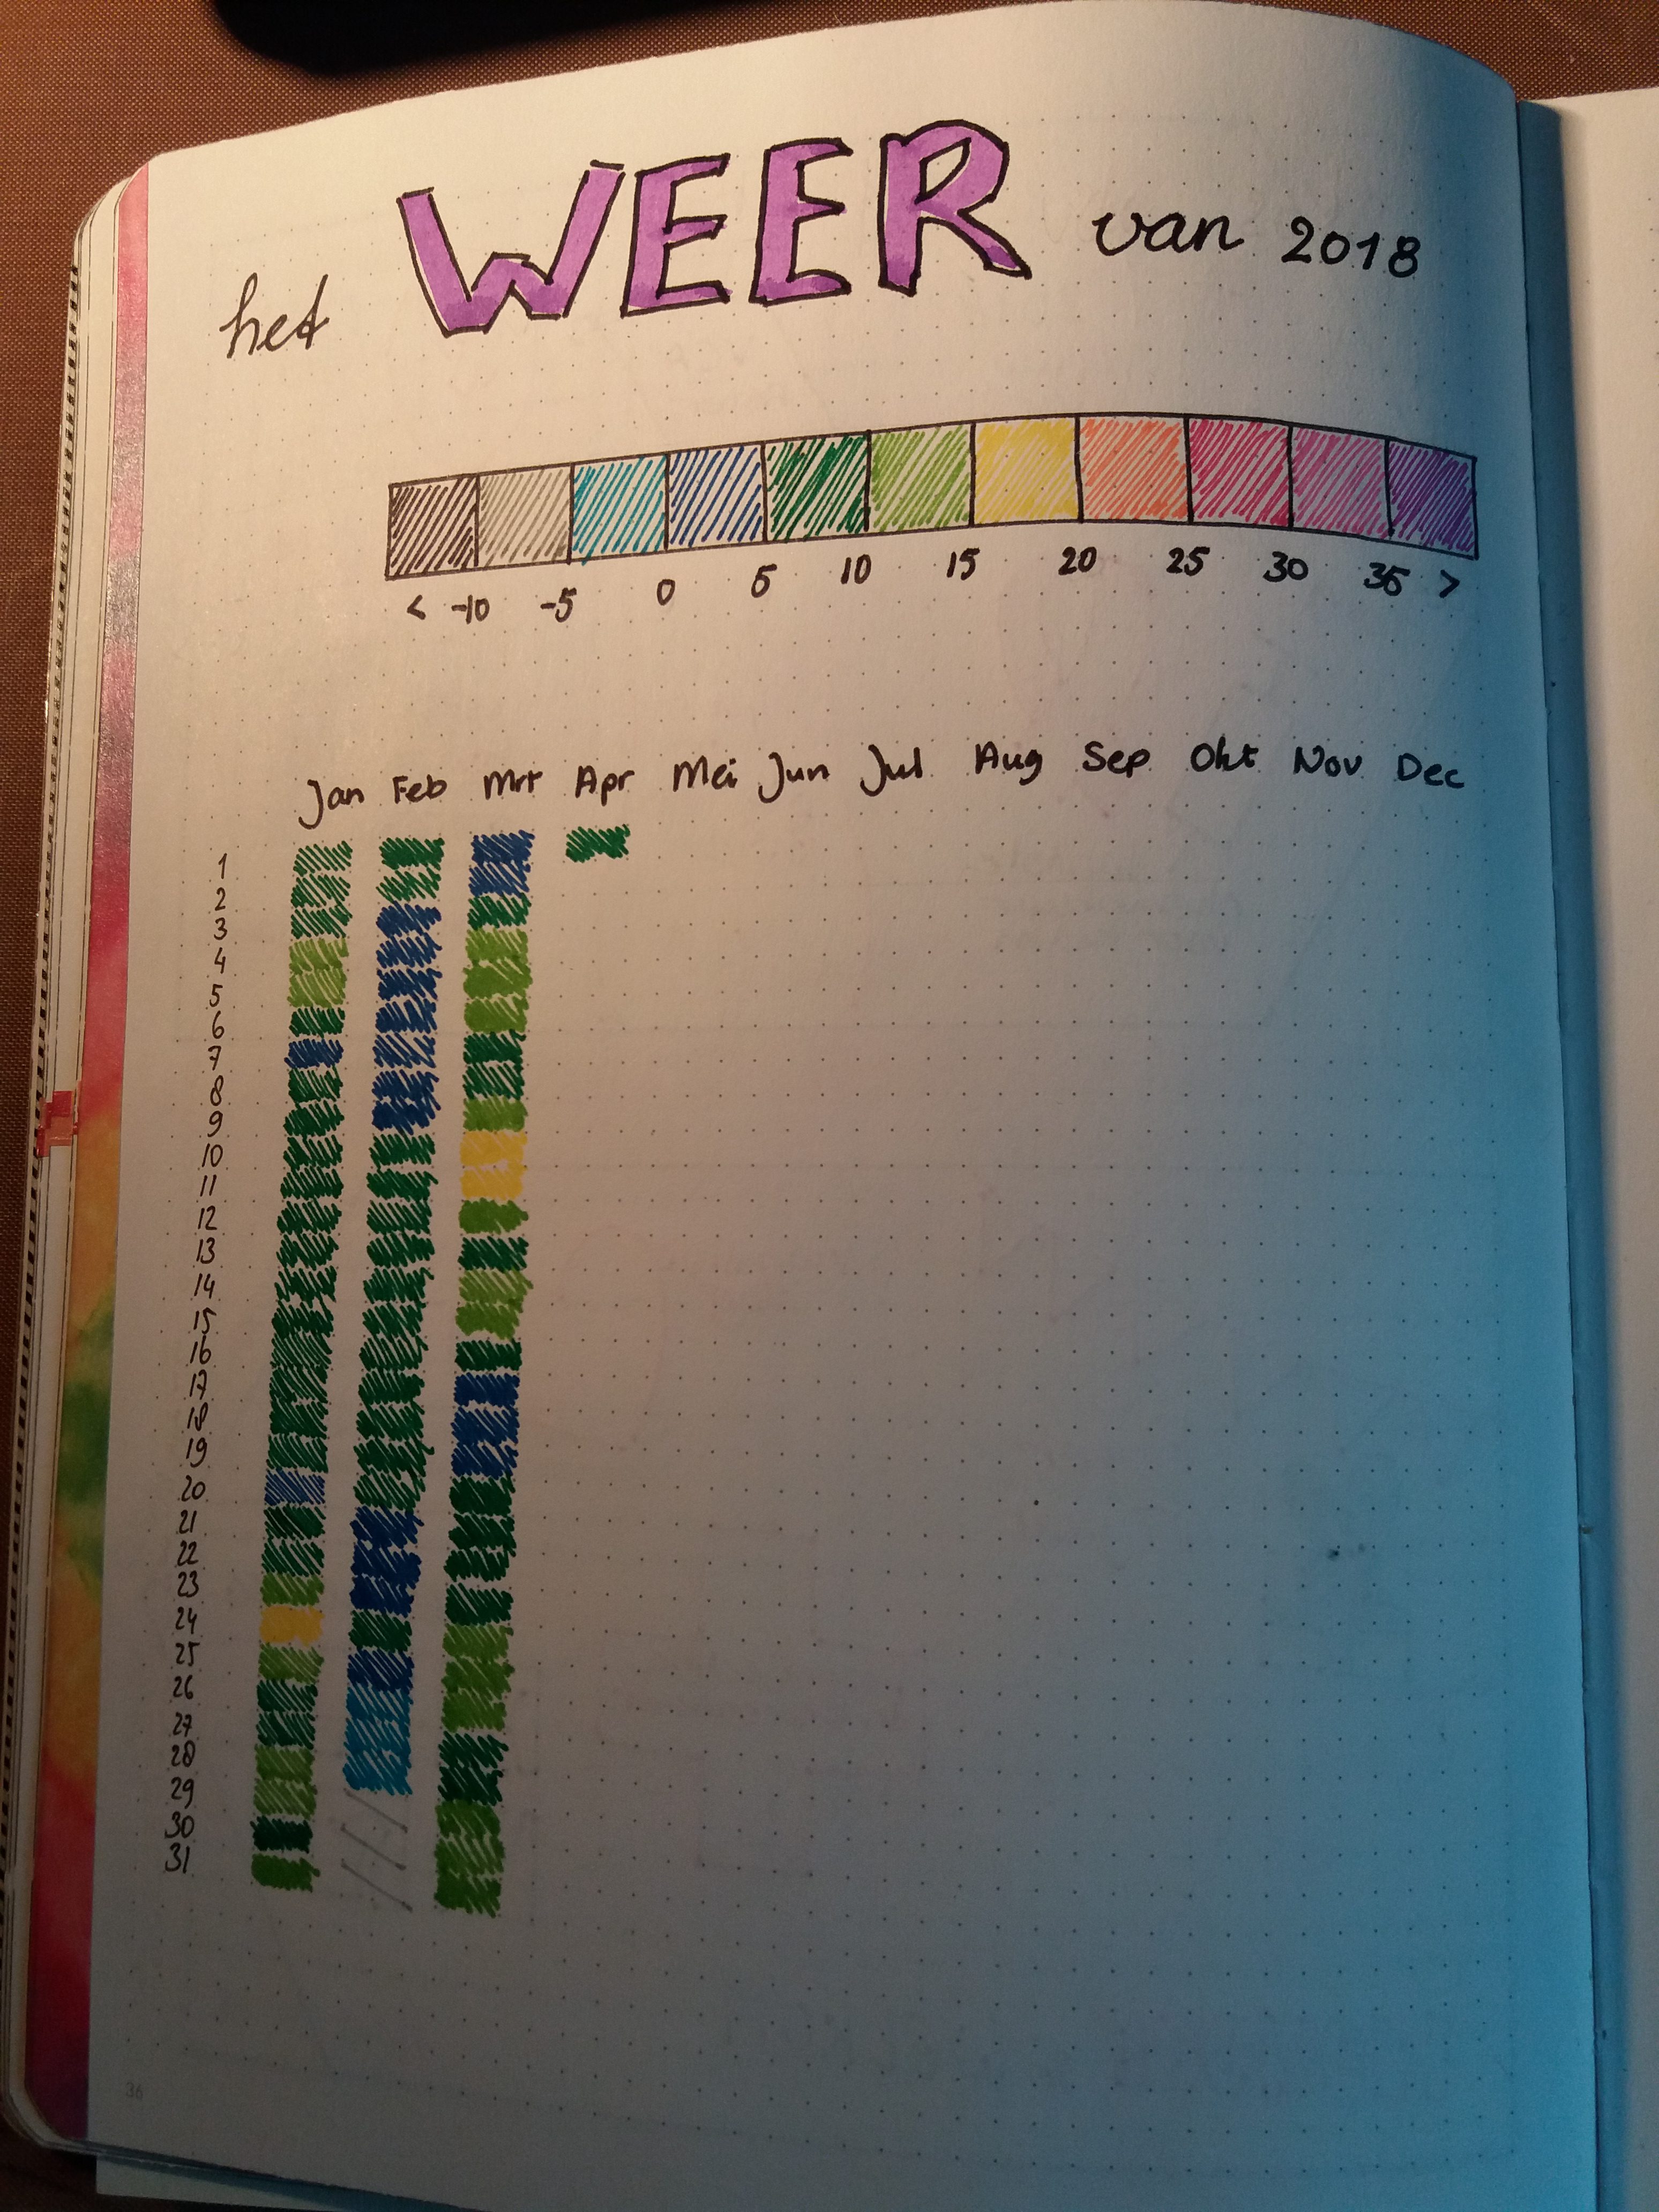 het WEER van 2018
< -10 -5 0 5 10 15 20 25 30 35 >
Jan Feb Mrt Apr Mei Jun Jul Aug Sep Okt Nov Dec
1
2
3
4
5
6
7
8
9
10
11
12
13
14
15
16
17
18
19
20
21
22
23
24
25
26
27
28
29
30
31
36